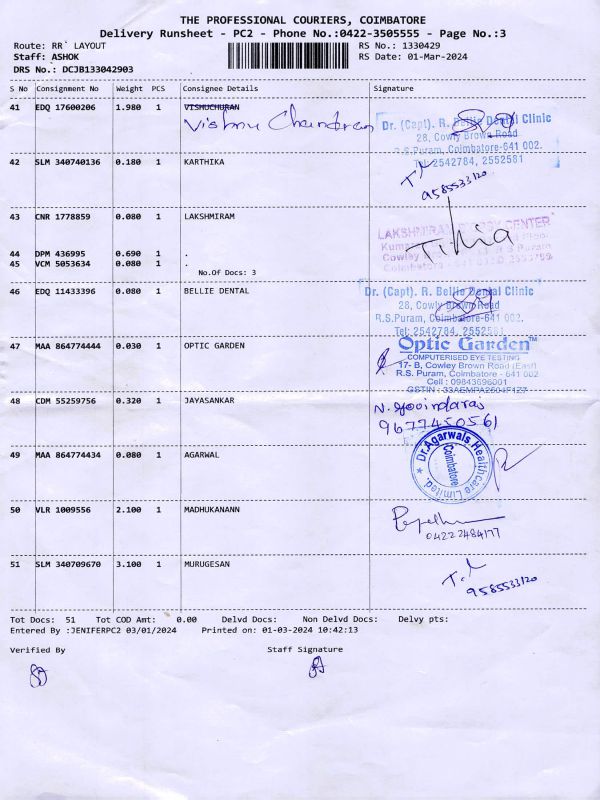 THE PROFESSIONAL COURIERS, COIMBATORE
Delivery Runsheet - PC2 - Phone No.:0422-3505555 - Page No.:3
Route: RR` LAYOUT RS No.: 1330429
Staff: ASHOK RS Date: 01-Mar-2024
DRS No.: DCJB133042903
S No Consignment No Weight PCS Consignee Details Signature
41 EDQ 17600206 1.980 1 VISHUCHURAN
Vishnu Chandran
Dr. (Capt). R. Bellie Dental Clinic
28, Cowly Brown Road
R.S.Puram, Coimbatore-641 002.
Tel: 2542784, 2552581
42 SLM 340740136 0.180 1 KARTHIKA
9585533120
43 CNR 1778859 0.080 1 LAKSHMIRAM
LAKSHMIRAM CENTER
Cowley
Coimbatore
44 DPM 436995 0.690 1 .
45 VCM 5053634 0.080 1 .
No.Of Docs: 3
46 EDQ 11433396 0.080 1 BELLIE DENTAL
Dr. (Capt). R. Bellie Dental Clinic
28, Cowly Brown Road
R.S.Puram, Coimbatore-641 002.
Tel: 2542784, 2552581
47 MAA 864774444 0.030 1 OPTIC GARDEN
Optic Garden™
COMPUTERISED EYE TESTING
17- B, Cowley Brown Road (East)
R.S. Puram, Coimbatore - 641 002
Cell : 09843696001
GSTIN : 33AEMPA2604F1Z7
48 CDM 55259756 0.320 1 JAYASANKAR
N. Govindaraj
9677450561
49 MAA 864774434 0.080 1 AGARWAL
Dr.Agarwals Healthcare Limited.
Coimbatore
50 VLR 1009556 2.100 1 MADHUKANANN
04222484177
51 SLM 340709670 3.100 1 MURUGESAN
9585533120
Tot Docs: 51 Tot COD Amt: 0.00 Delvd Docs: Non Delvd Docs: Delvy pts:
Entered By :JENIFERPC2 03/01/2024 Printed on: 01-03-2024 10:42:13
Verified By Staff Signature